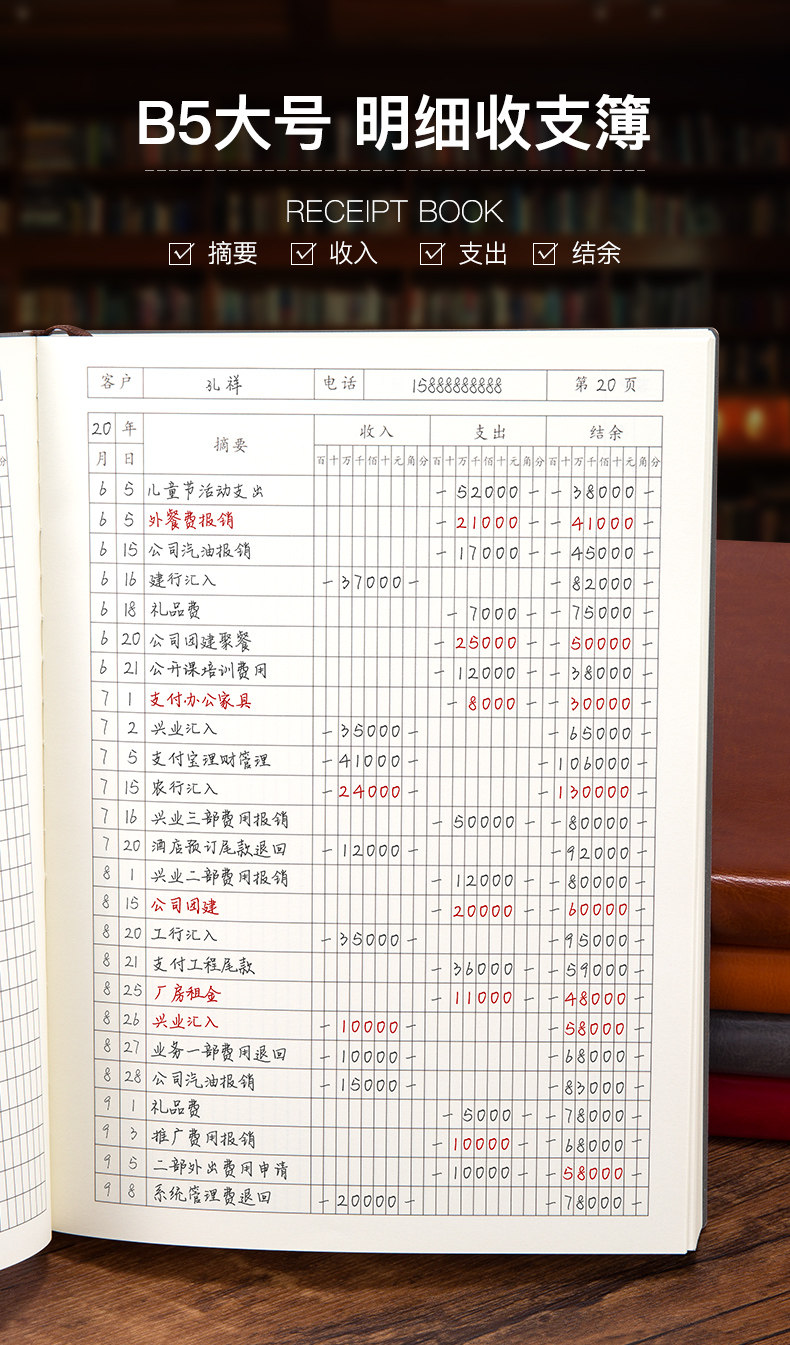 B5大号 明细收支簿
RECEIPT BOOK
摘要 收入 支出 结余
客户 孔祥 电话 15888888888 第 20 页
20 年 摘要 收入 支出 结余
月 日 百十万千佰十元角分 百十万千佰十元角分 百十万千佰十元角分
分
6 5 儿童节活动支出 -52000- -38000-
6 5 外餐费报销 -21000- -41000-
6 15 公司汽油报销 -17000- -45000-
6 16 建行汇入 -37000- -82000-
6 18 礼品费 -7000- -75000-
6 20 公司团建聚餐 -25000- -50000-
6 21 公开课培训费用 -12000- -38000-
7 1 支付办公家具 -8000- -30000-
7 2 兴业汇入 -35000- -65000-
7 5 支付宝理财管理 -41000- -106000-
7 15 农行汇入 -24000- -130000-
7 16 兴业三部费用报销 -50000- -80000-
7 20 酒店预订尾款退回 -12000- -92000-
8 1 兴业二部费用报销 -12000- -80000-
8 15 公司团建 -20000- -60000-
8 20 工行汇入 -35000- -95000-
8 21 支付工程尾款 -36000- -59000-
8 25 厂房租金 -11000- -48000-
8 26 兴业汇入 -10000- -58000-
8 27 业务一部费用退回 -10000- -68000-
8 28 公司汽油报销 -15000- -83000-
9 1 礼品费 -5000- -78000-
9 3 推广费用报销 -10000- -68000-
9 5 二部外出费用申请 -10000- -58000-
9 8 系统管理费退回 -20000- -78000-